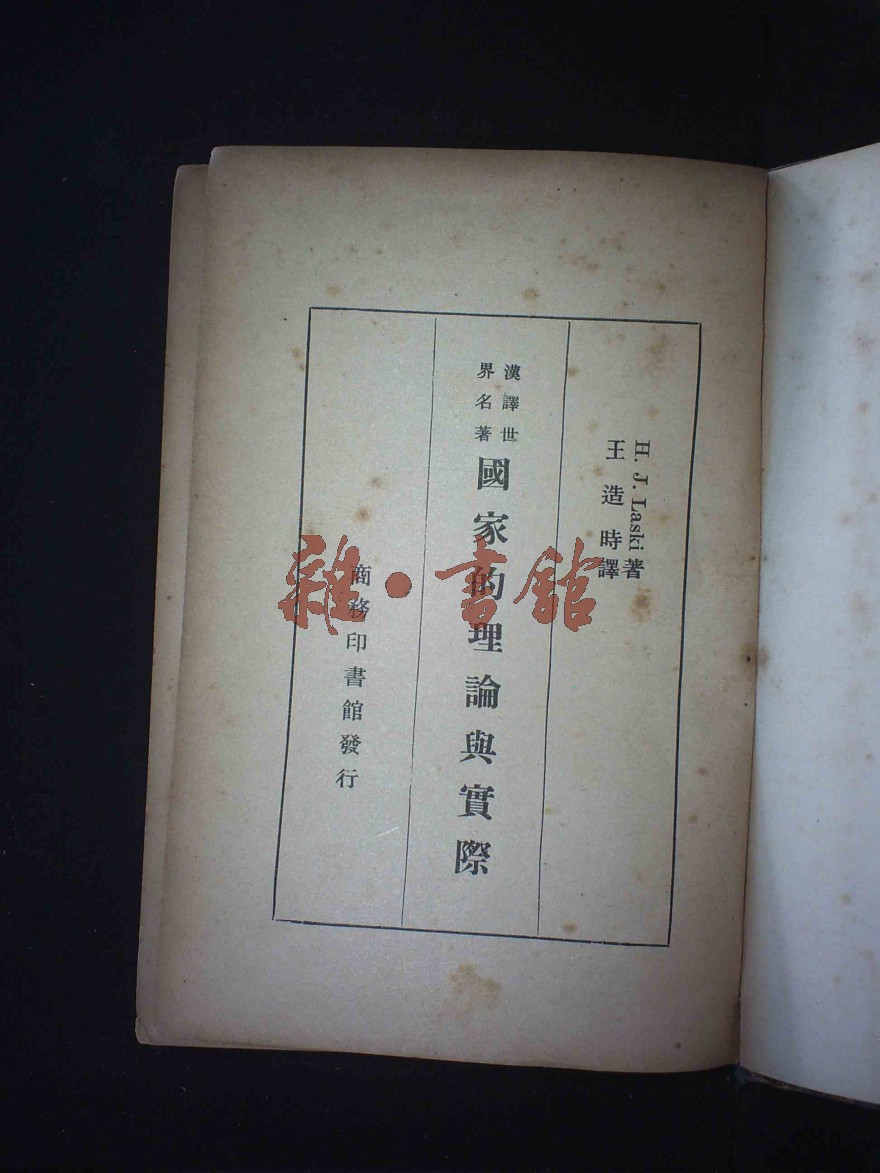 H. J. Laski 著
王造時譯
漢譯世
界名著
國家的理論與實際
商務印書館發行
雜·書館